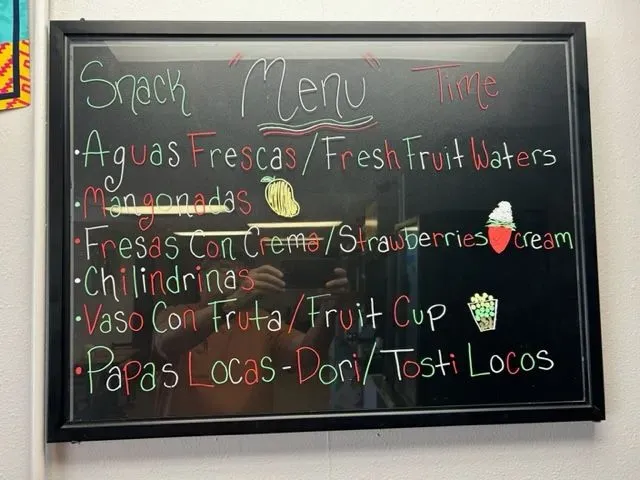 Snack "Menu" Time
·Aguas Frescas/Fresh Fruit Waters
·Mangonadas
·Fresas Con Crema/Strawberries cream
·Chilindrinas
·Vaso Con Fruta/Fruit Cup
·Papas Locas-Dori/Tosti Locos